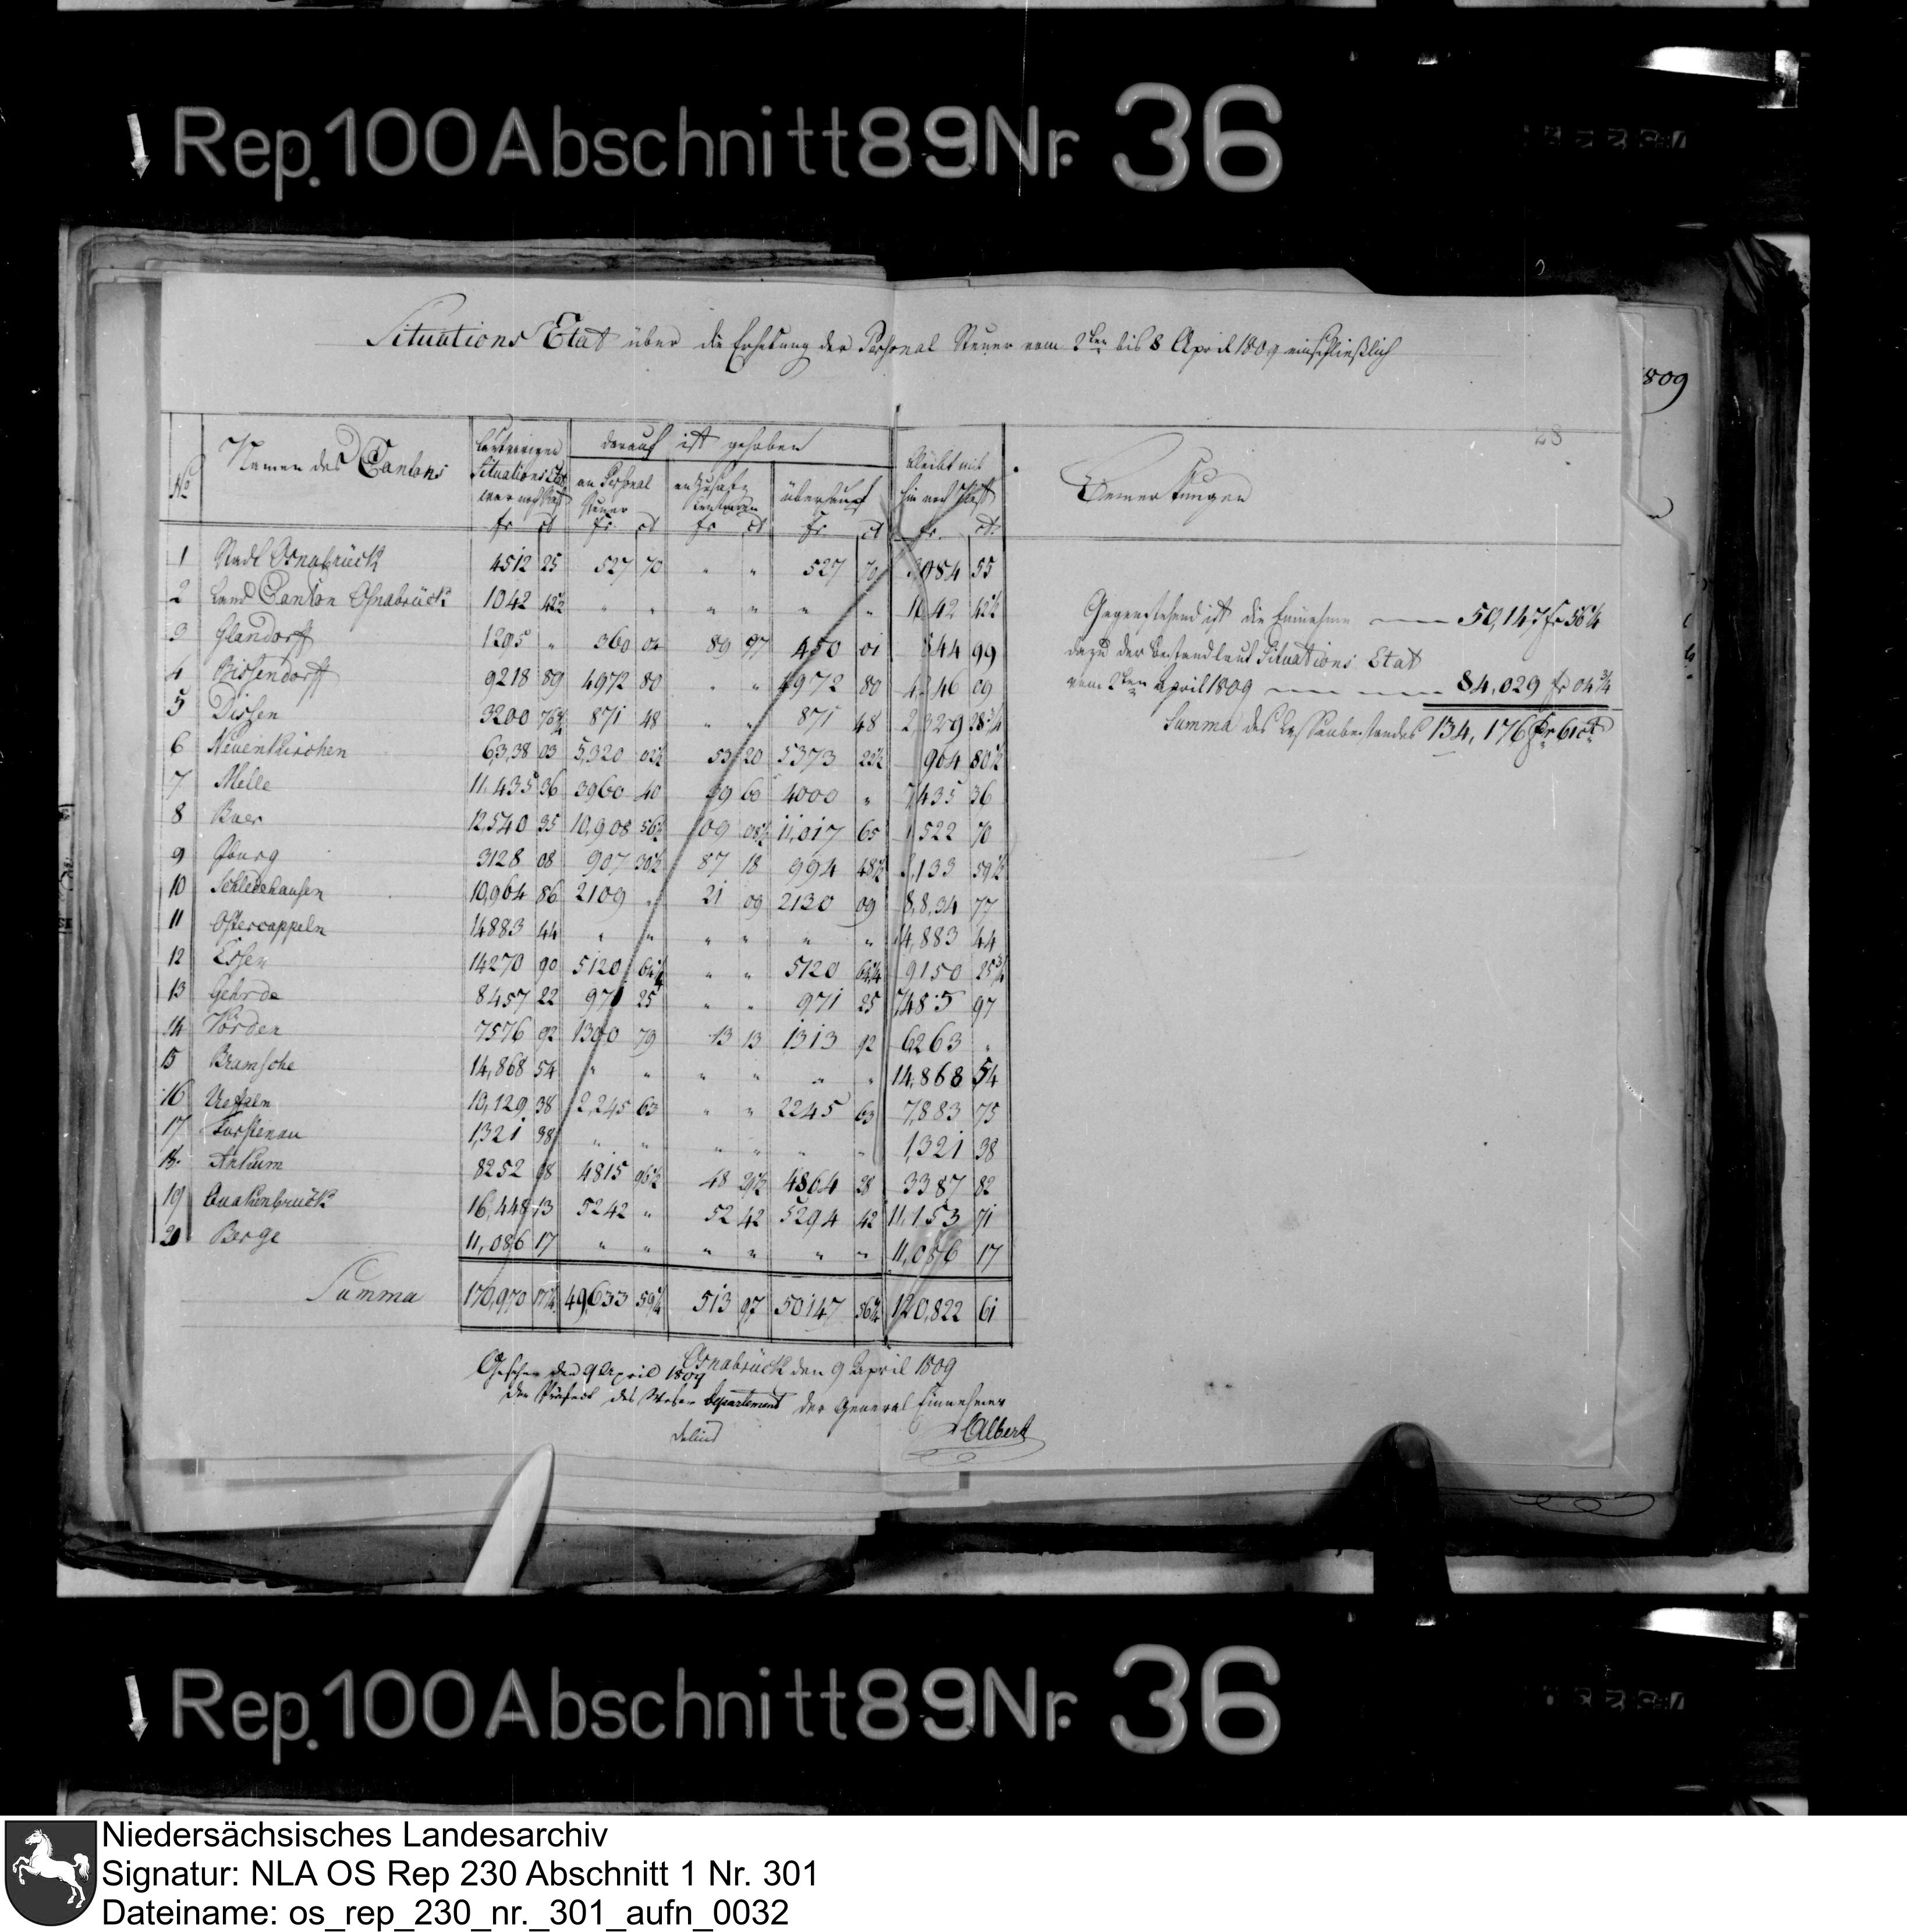 Rep. 100 Abschnitt 89 Nr. 36
Situations Etat über die Erhebung der Personal Steuer vom 2ten bis 8 April 1809 einschließlich
1809
28
No Namen des Cantons darauf ist gehoben Bemerkungen
an Personal Steuer überhaupt
fr ct fr. ct fr ct fr. ct fr. ct.
1 Stadt Osnabrück 4512 25 527 70 " " 527 70 3984 55
2 Land Canton Osnabrück 1042 42½ " " " " " " 1042 42½
3 Glandorff 1295 " 360 04 89 97 450 01 844 99
4 Bissendorff 9218 89 4972 80 " " 4972 80 4246 09
5 Dissen 3200 76¾ 871 48 " " 871 48 2,329 28¾
6 Neuenkirchen 6,338 03 5,320 02½ 53 20 5373 22½ 964 80½
7 Melle 11,435 36 3960 40 39 60 4000 " 7,435 36
8 Buer 12,540 35 10,908 56½ 109 08½ 11,017 65 1,522 70
9 Iburg 3128 08 907 30½ 87 18 994 48½ 2,133 59½
10 Schledehausen 10,964 86 2109 " 21 09 2130 09 8,834 77
11 Ostercappeln 14883 44 " " " " " " 14,883 44
12 Essen 14270 90 5120 64¼ " " 5120 64¼ 9150 25¾
13 Gehrde 8457 22 971 25 " " 971 25 7,485 97
14 Vörden 7576 92 1300 79 13 13 1313 92 6263 "
15 Bramsche 14,868 54 " " " " " " 14,868 54
16 Ueffeln 10,129 38 2,245 63 " " 2245 63 7,883 75
17 Fürstenau 1,321 38 " " " " " " 1,321 38
18. Ankum 8252 98 4815 96½ 48 29½ 4864 28 3387 82
19 Quakenbrück 16,448 13 5242 " 52 42 5294 42 11,153 71
20 Berge 11,086 17 " " " " " " 11,086 17
Summa 170,970 17¼ 49,633 59¼ 513 97 50147 56¼ 120,822 61
Gegenstehend ist die Einnahme — 50,147 fr 56¼
dazu der Bestand laut Situations Etat
vom 2ten April 1809 — — 84,029 fr 04¾
Summa des Cassenbestandes 134,176 fr 61 ct
Osnabrück den 9 April 1809
Gesehen den 9 April 1809
der Präfect des Weser Departement
der General Einnehmer
Delius
Albert
Rep. 100 Abschnitt 89 Nr. 36
Niedersächsisches Landesarchiv
Signatur: NLA OS Rep 230 Abschnitt 1 Nr. 301
Dateiname: os_rep_230_nr._301_aufn_0032